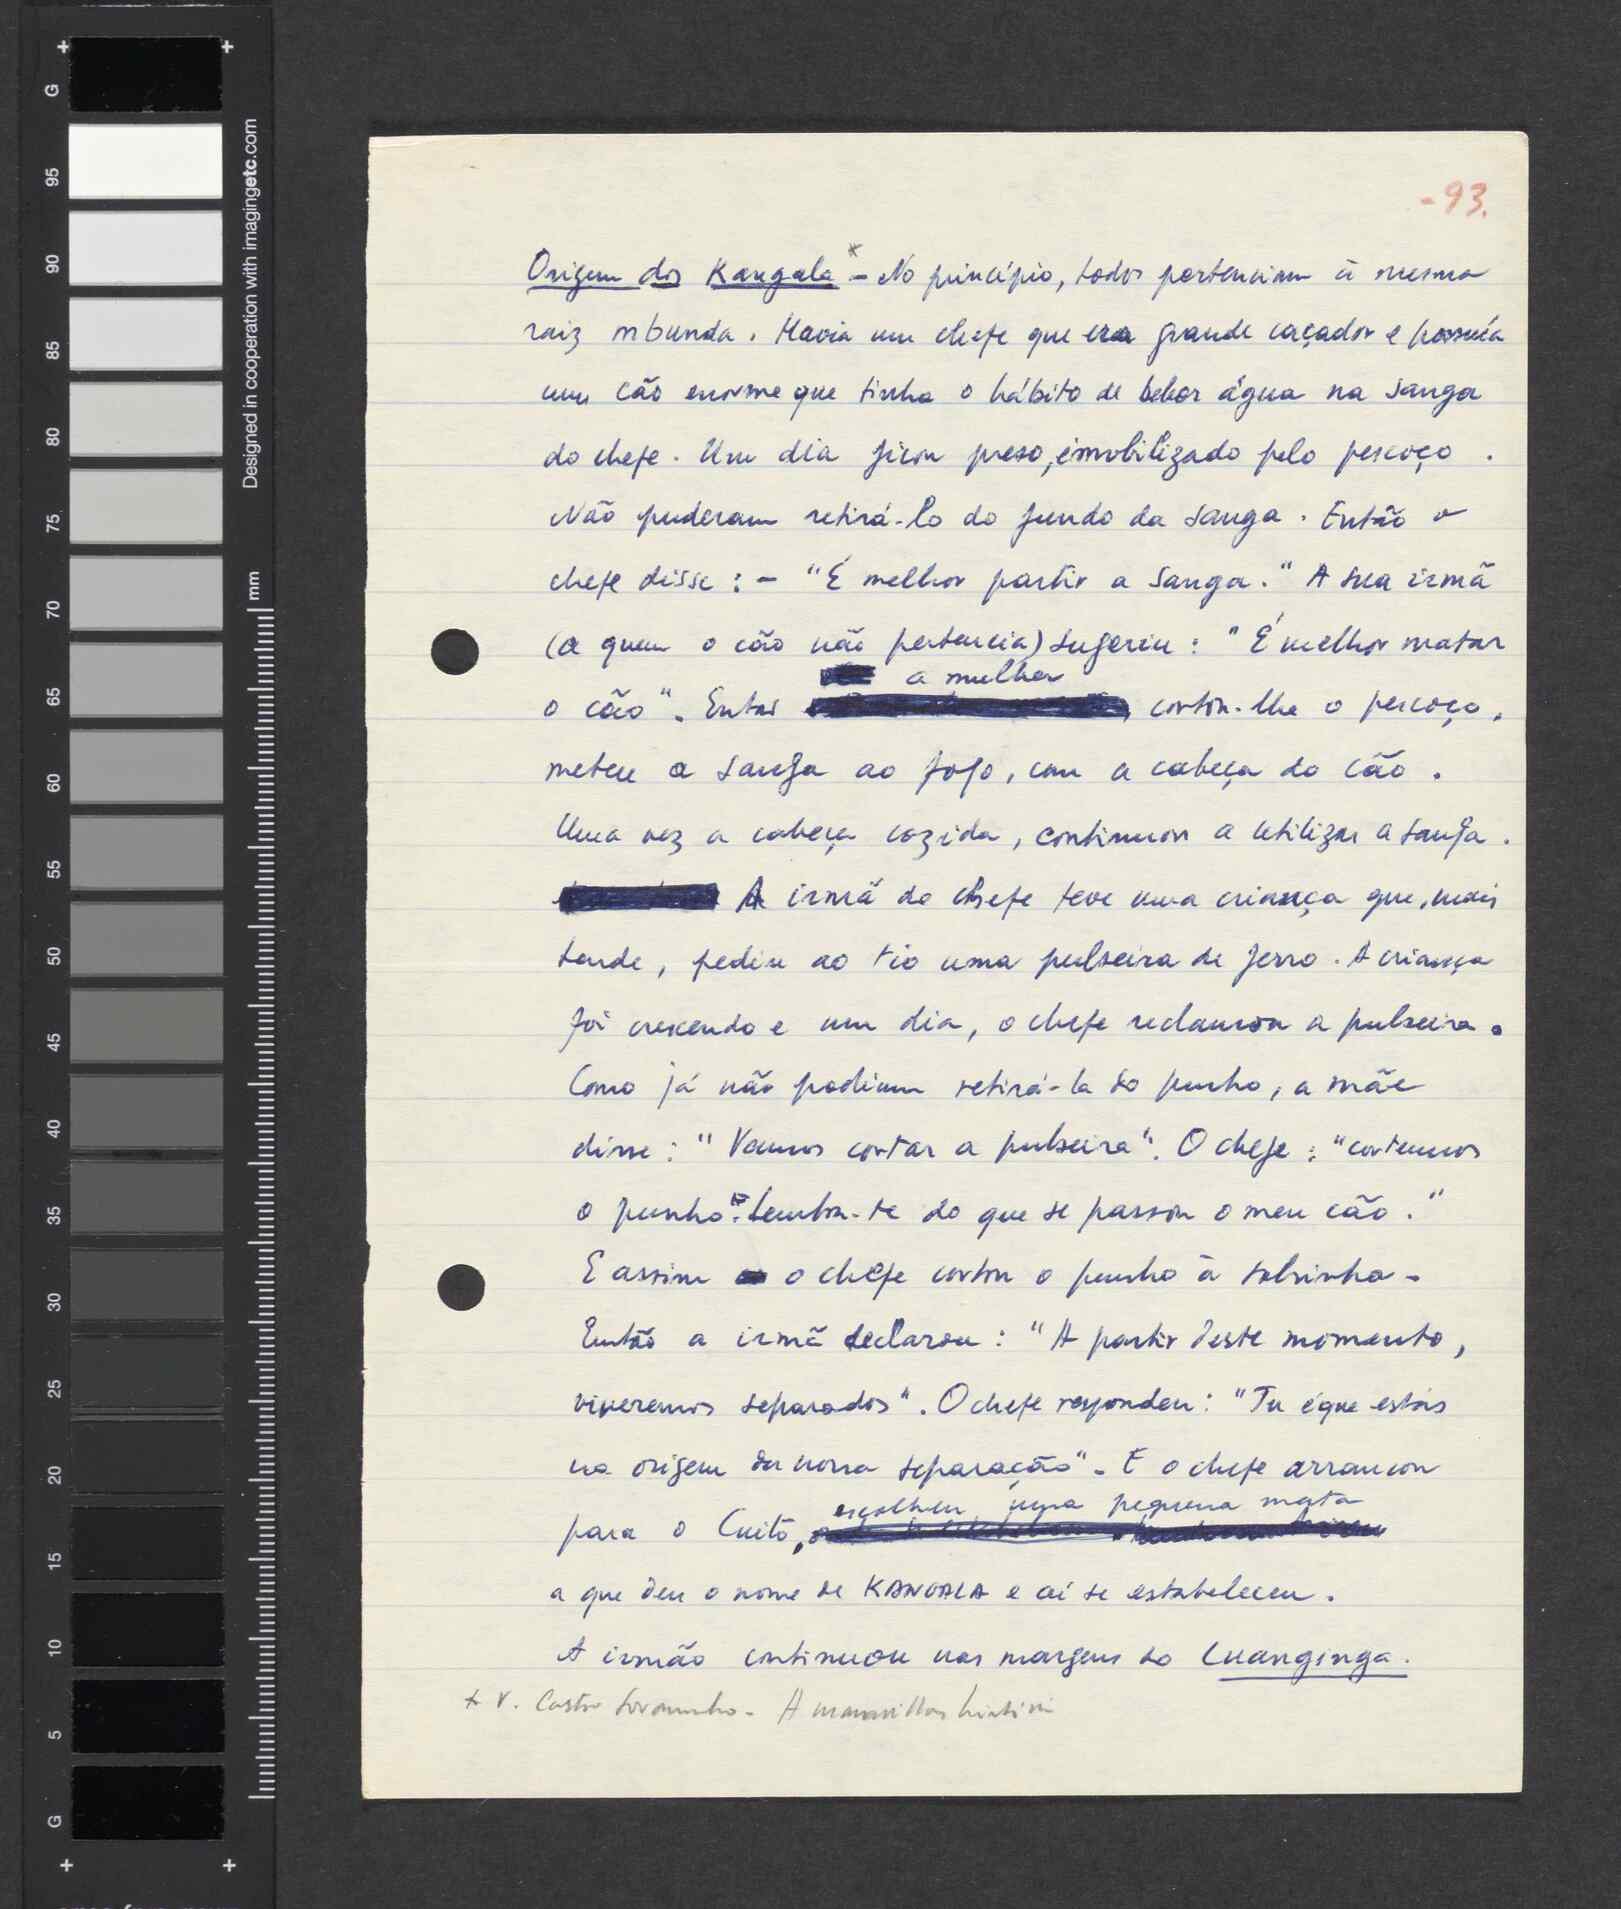 -93.
Origem dos Kangala * - No princípio, todos pertenciam à mesma
raiz mbunda. Havia um chefe que era grande caçador e possuía
um cão enorme que tinha o hábito de beber água na sanga
do chefe. Um dia ficou preso, imobilizado pelo pescoço.
Não puderam retirá-lo do fundo da sanga. Então o
chefe disse: - "É melhor partir a sanga." A sua irmã
(a quem o cão não pertencia) sugeriu: "É melhor matar
a mulher
o cão". Então cortou-lhe o pescoço,
meteu a sanga ao fogo, com a cabeça do cão.
Uma vez a cabeça cozida, continuou a utilizar a sanga.
A irmã do chefe teve uma criança que, mais
tarde, pediu ao tio uma pulseira de ferro. A criança
foi crescendo e um dia, o chefe reclamou a pulseira.
Como já não podiam retirá-la do punho, a mãe
disse: "Vamos cortar a pulseira". O chefe: "cortemos
o punho. Lembra-te do que se passou o meu cão."
E assim o chefe cortou o punho à sobrinha.
Então a irmã declarou: "A partir deste momento,
viveremos separados". O chefe respondeu: "Tu é que estás
na origem da nossa separação". E o chefe arrancou
escolheu uma pequena mata
para o Cuito,
a que deu o nome de KANGALA e aí se estabeleceu.
A irmão continuou nas margens do Luanginga.
* V. Castro Soromenho - A
G
95
90
85
80
75
70
65
60
55
50
45
40
35
30
25
20
15
10
5
G
mm
Designed in cooperation with imagingetc.com